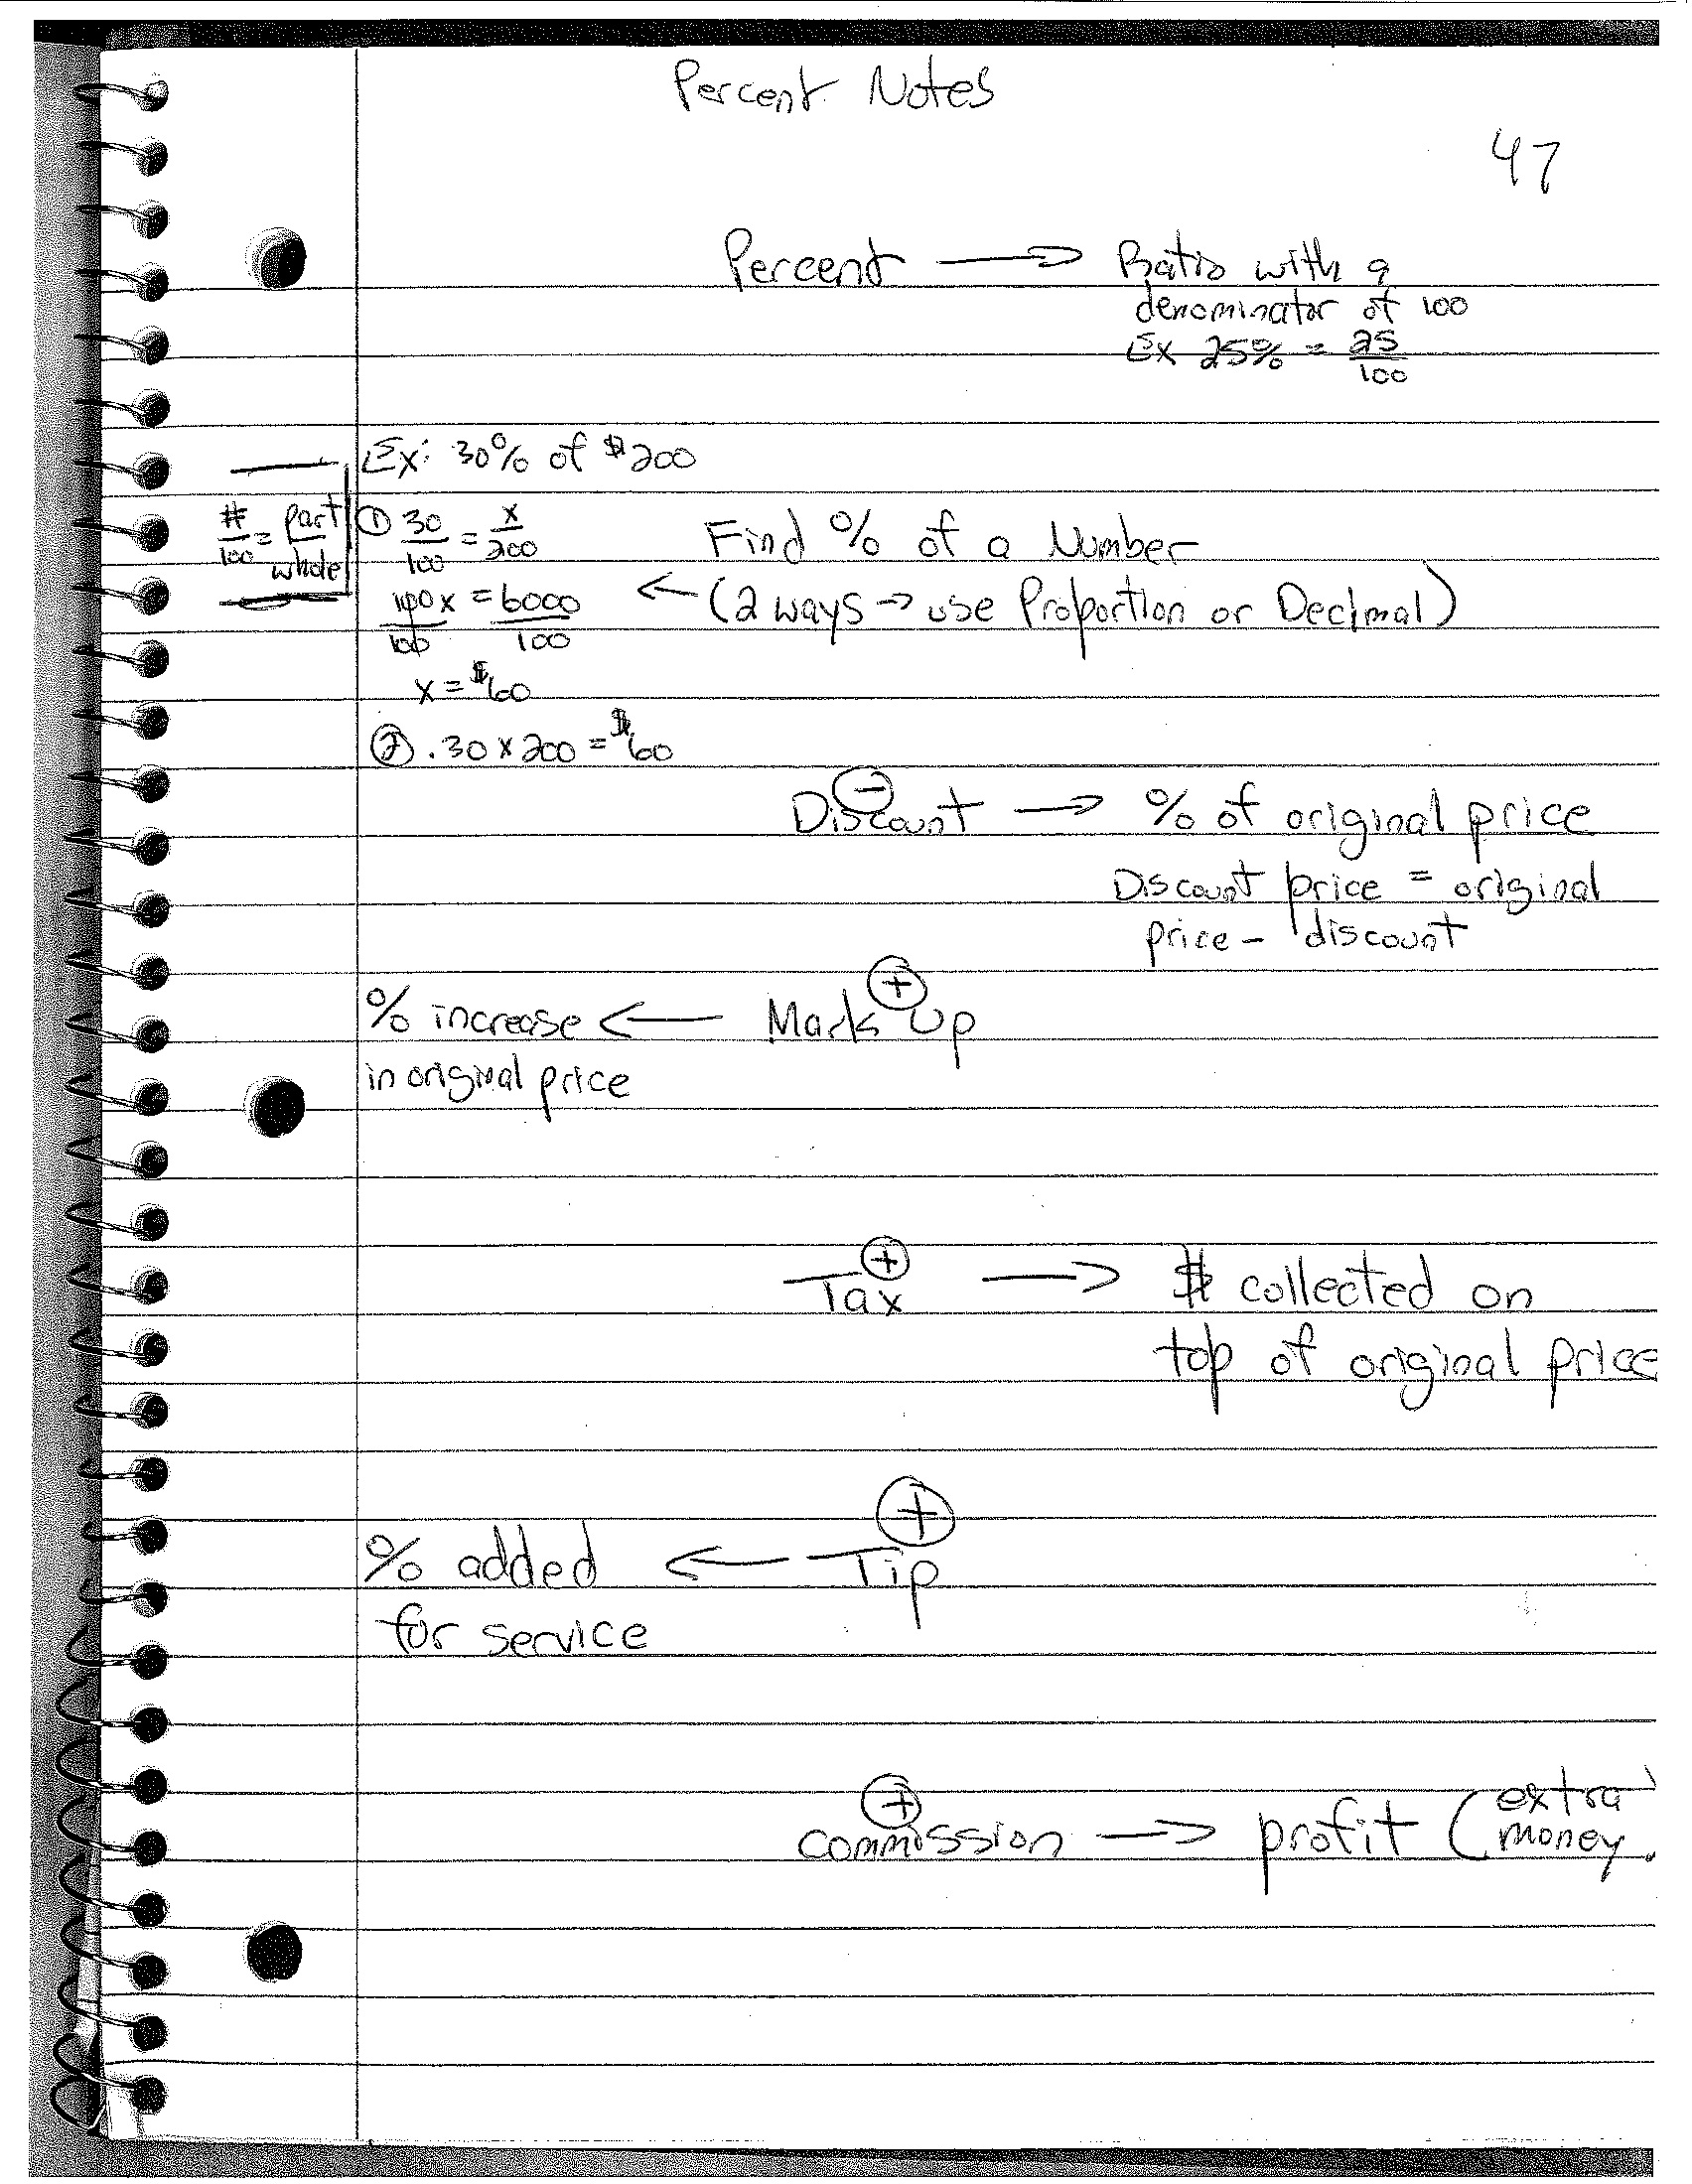 Percent Notes
47
Percent → Ratio with a
denominator of 100
Ex 25% = 25/100
Ex: 30% of $200
#/100 = part/whole
① 30/100 = x/200
100x/100 = 6000/100
x = $60
② .30 x 200 = $60
Find % of a Number
← (2 ways → use Proportion or Decimal)
⊖
Discount → % of original price
Discount price = original
price - discount
⊕
% increase ← Mark Up
in original price
⊕
Tax → $ collected on
top of original price
⊕
% added ← Tip
for service
⊕
commission → profit (extra
money)